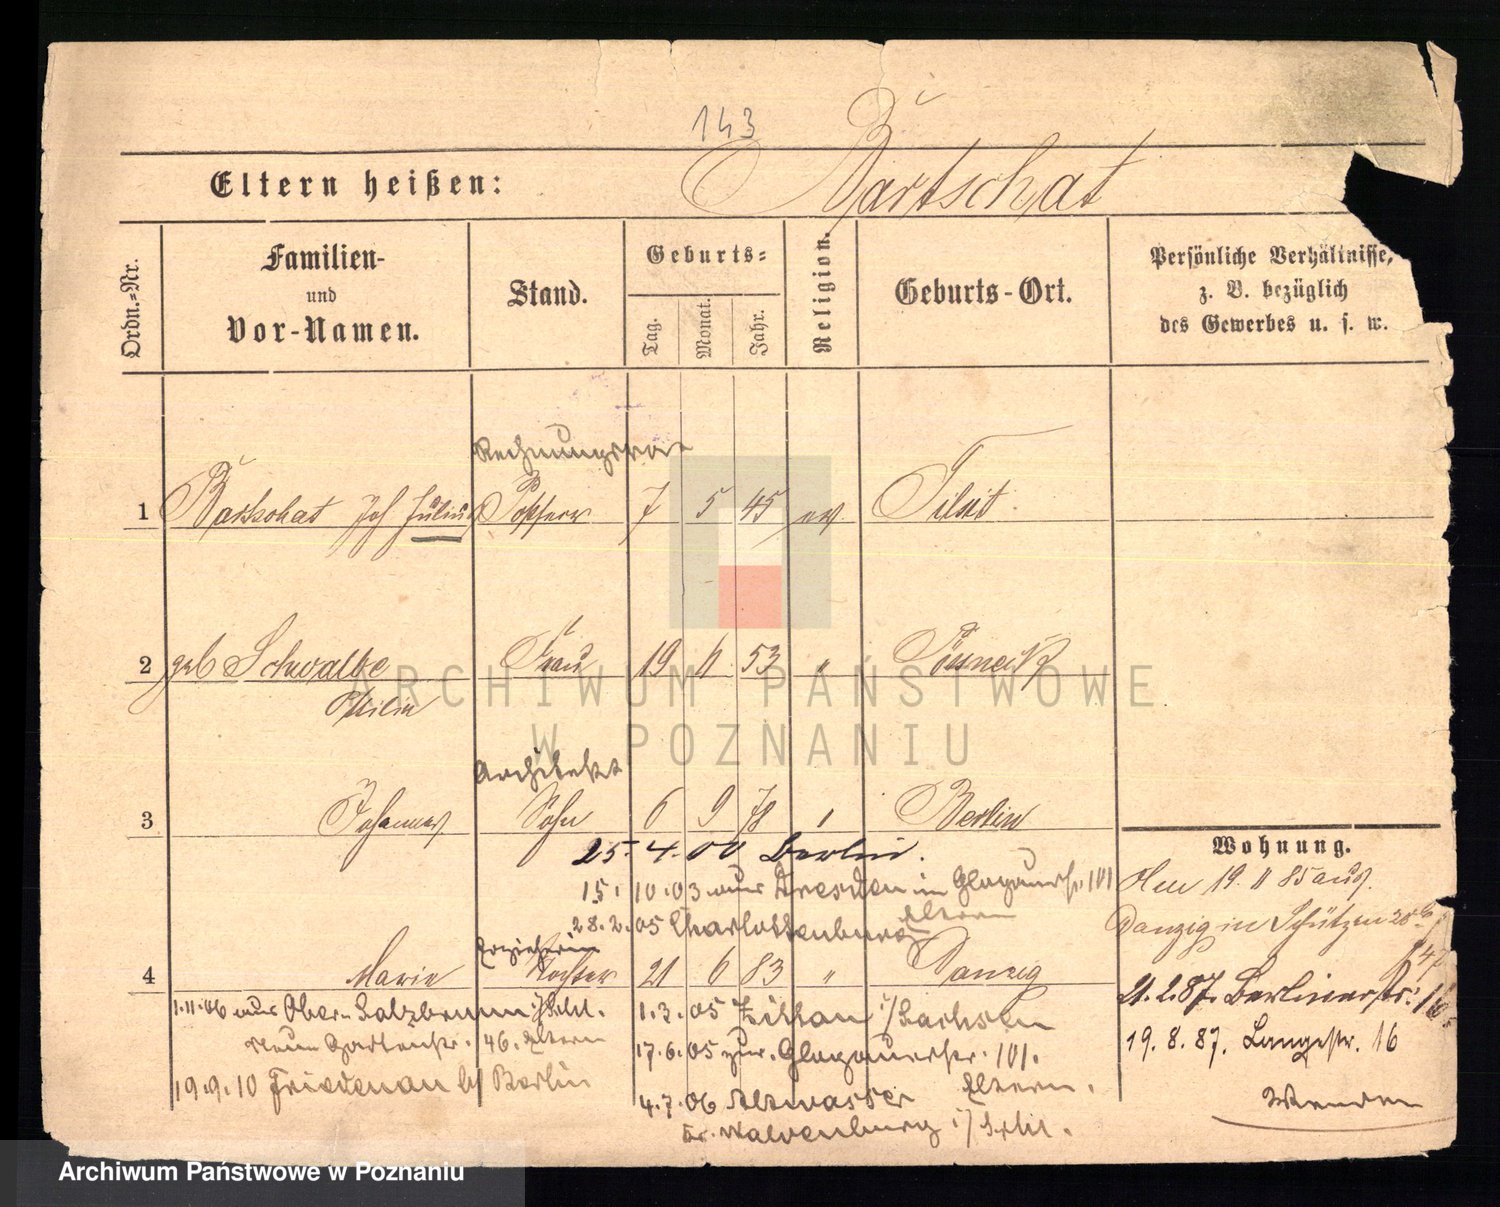 143
Eltern heißen: Bartschat
Ordn.-Nr.
Familien-
und
Vor-Namen.
Stand.
Geburts-
Tag.
Monat.
Jahr.
Religion.
Geburts-Ort.
Persönliche Verhältnisse,
z. B. bezüglich
des Gewerbes u. s. w.
Rechnungsrat
1 Bartschat Joh Julius 7 5 45 ev. Tilsit
2 geb Schwalbe Frau 19 11 53 "
Ottilie
Architekt
3 Johannes Sohn 6 9 78 " Berlin
25.4.00 Berlin.
15. 10.03 aus Dresden in Glogauerstr. 101
Eltern
28.2.05 Charlottenburg
Erzieherin
4 Marie Tochter 21 6 83 " Danzig
1.11.06 aus Ober-Salzbrunn i/Schl.
Neue Gartenstr. 46. Eltern
19.9.10 Friedenau b/ Berlin
1.3.05 Zittau i/Sachsen
17.6.05 zur. Glogauerstr. 101.
Eltern.
4.7.06 Altwasser
Kr. Waldenburg i/Schl.
Wohnung.
19. 11 85 aus
Danzig in Schützen
21.2.87. Berlinerstr. 16
19.8.87. Langestr. 16
Wenden
ARCHIWUM PAŃSTWOWE
W POZNANIU
Archiwum Państwowe w Poznaniu